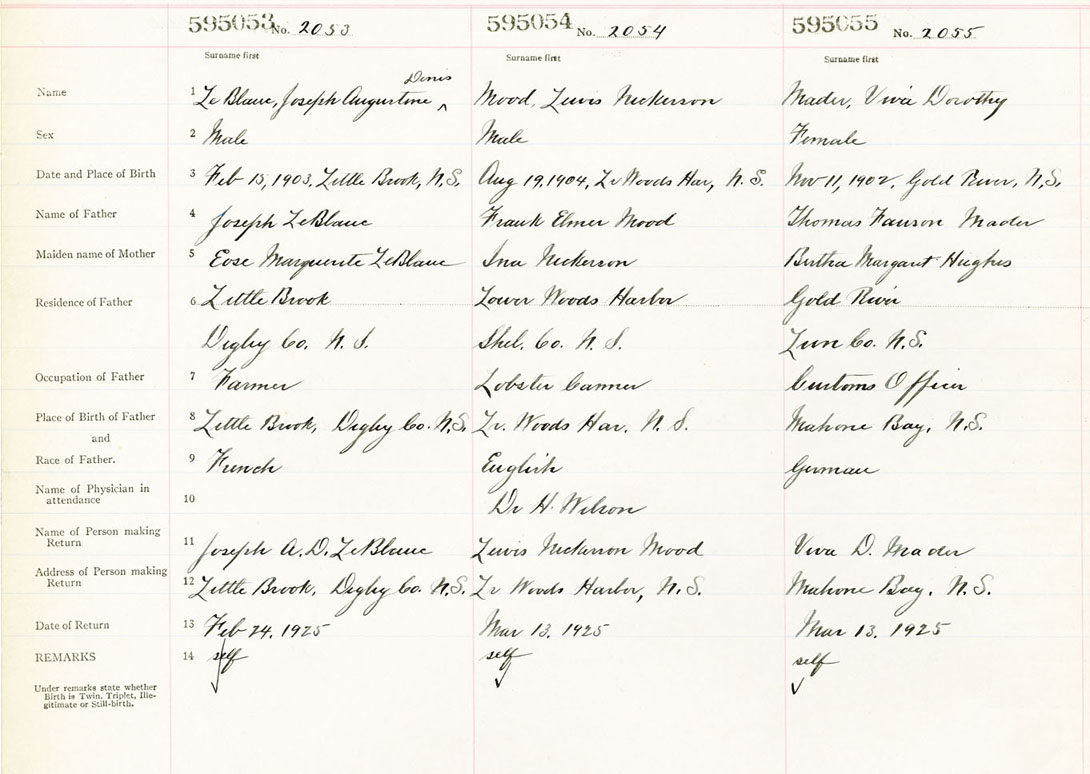 595053 No. 2053 595054 No. 2054 595055 No. 2055
Surname first Surname first Surname first
Denis
Name 1 LeBlanc, Joseph Augustine ^ Mood, Lewis Nickerson Mader, Viva Dorothy
Sex 2 Male Male Female
Date and Place of Birth 3 Feb 15, 1903, Little Brook, N.S. Aug 19, 1904, Lr Woods Har, N.S. Nov 11, 1902, Gold River, N.S.
Name of Father 4 Joseph LeBlanc Frank Elmer Mood Thomas Mader
Maiden name of Mother 5 Marguerite LeBlanc Ina Nickerson Bertha Margaret Hughes
Residence of Father 6 Little Brook Lower Woods Harbor Gold River
Digby Co. N.S. Shel. Co. N.S. Lun Co. N.S.
Occupation of Father 7 Farmer Lobster Canner Customs Officer
Place of Birth of Father 8 Little Brook, Digby Co. N.S. Lr. Woods Har. N.S. Mahone Bay, N.S.
and
Race of Father. 9 French English German
Name of Physician in
attendance 10 Dr H. Wilson
Name of Person making
Return 11 Joseph A. D. LeBlanc Lewis Nickerson Mood Viva D. Mader
Address of Person making
Return 12 Little Brook, Digby Co. N.S. Lr Woods Harbor, N.S. Mahone Bay, N.S.
Date of Return 13 Feb 24, 1925 Mar 13, 1925 Mar 13, 1925
REMARKS 14 self self self
Under remarks state whether
Birth is Twin, Triplet, Ille-
gitimate or Still-birth.